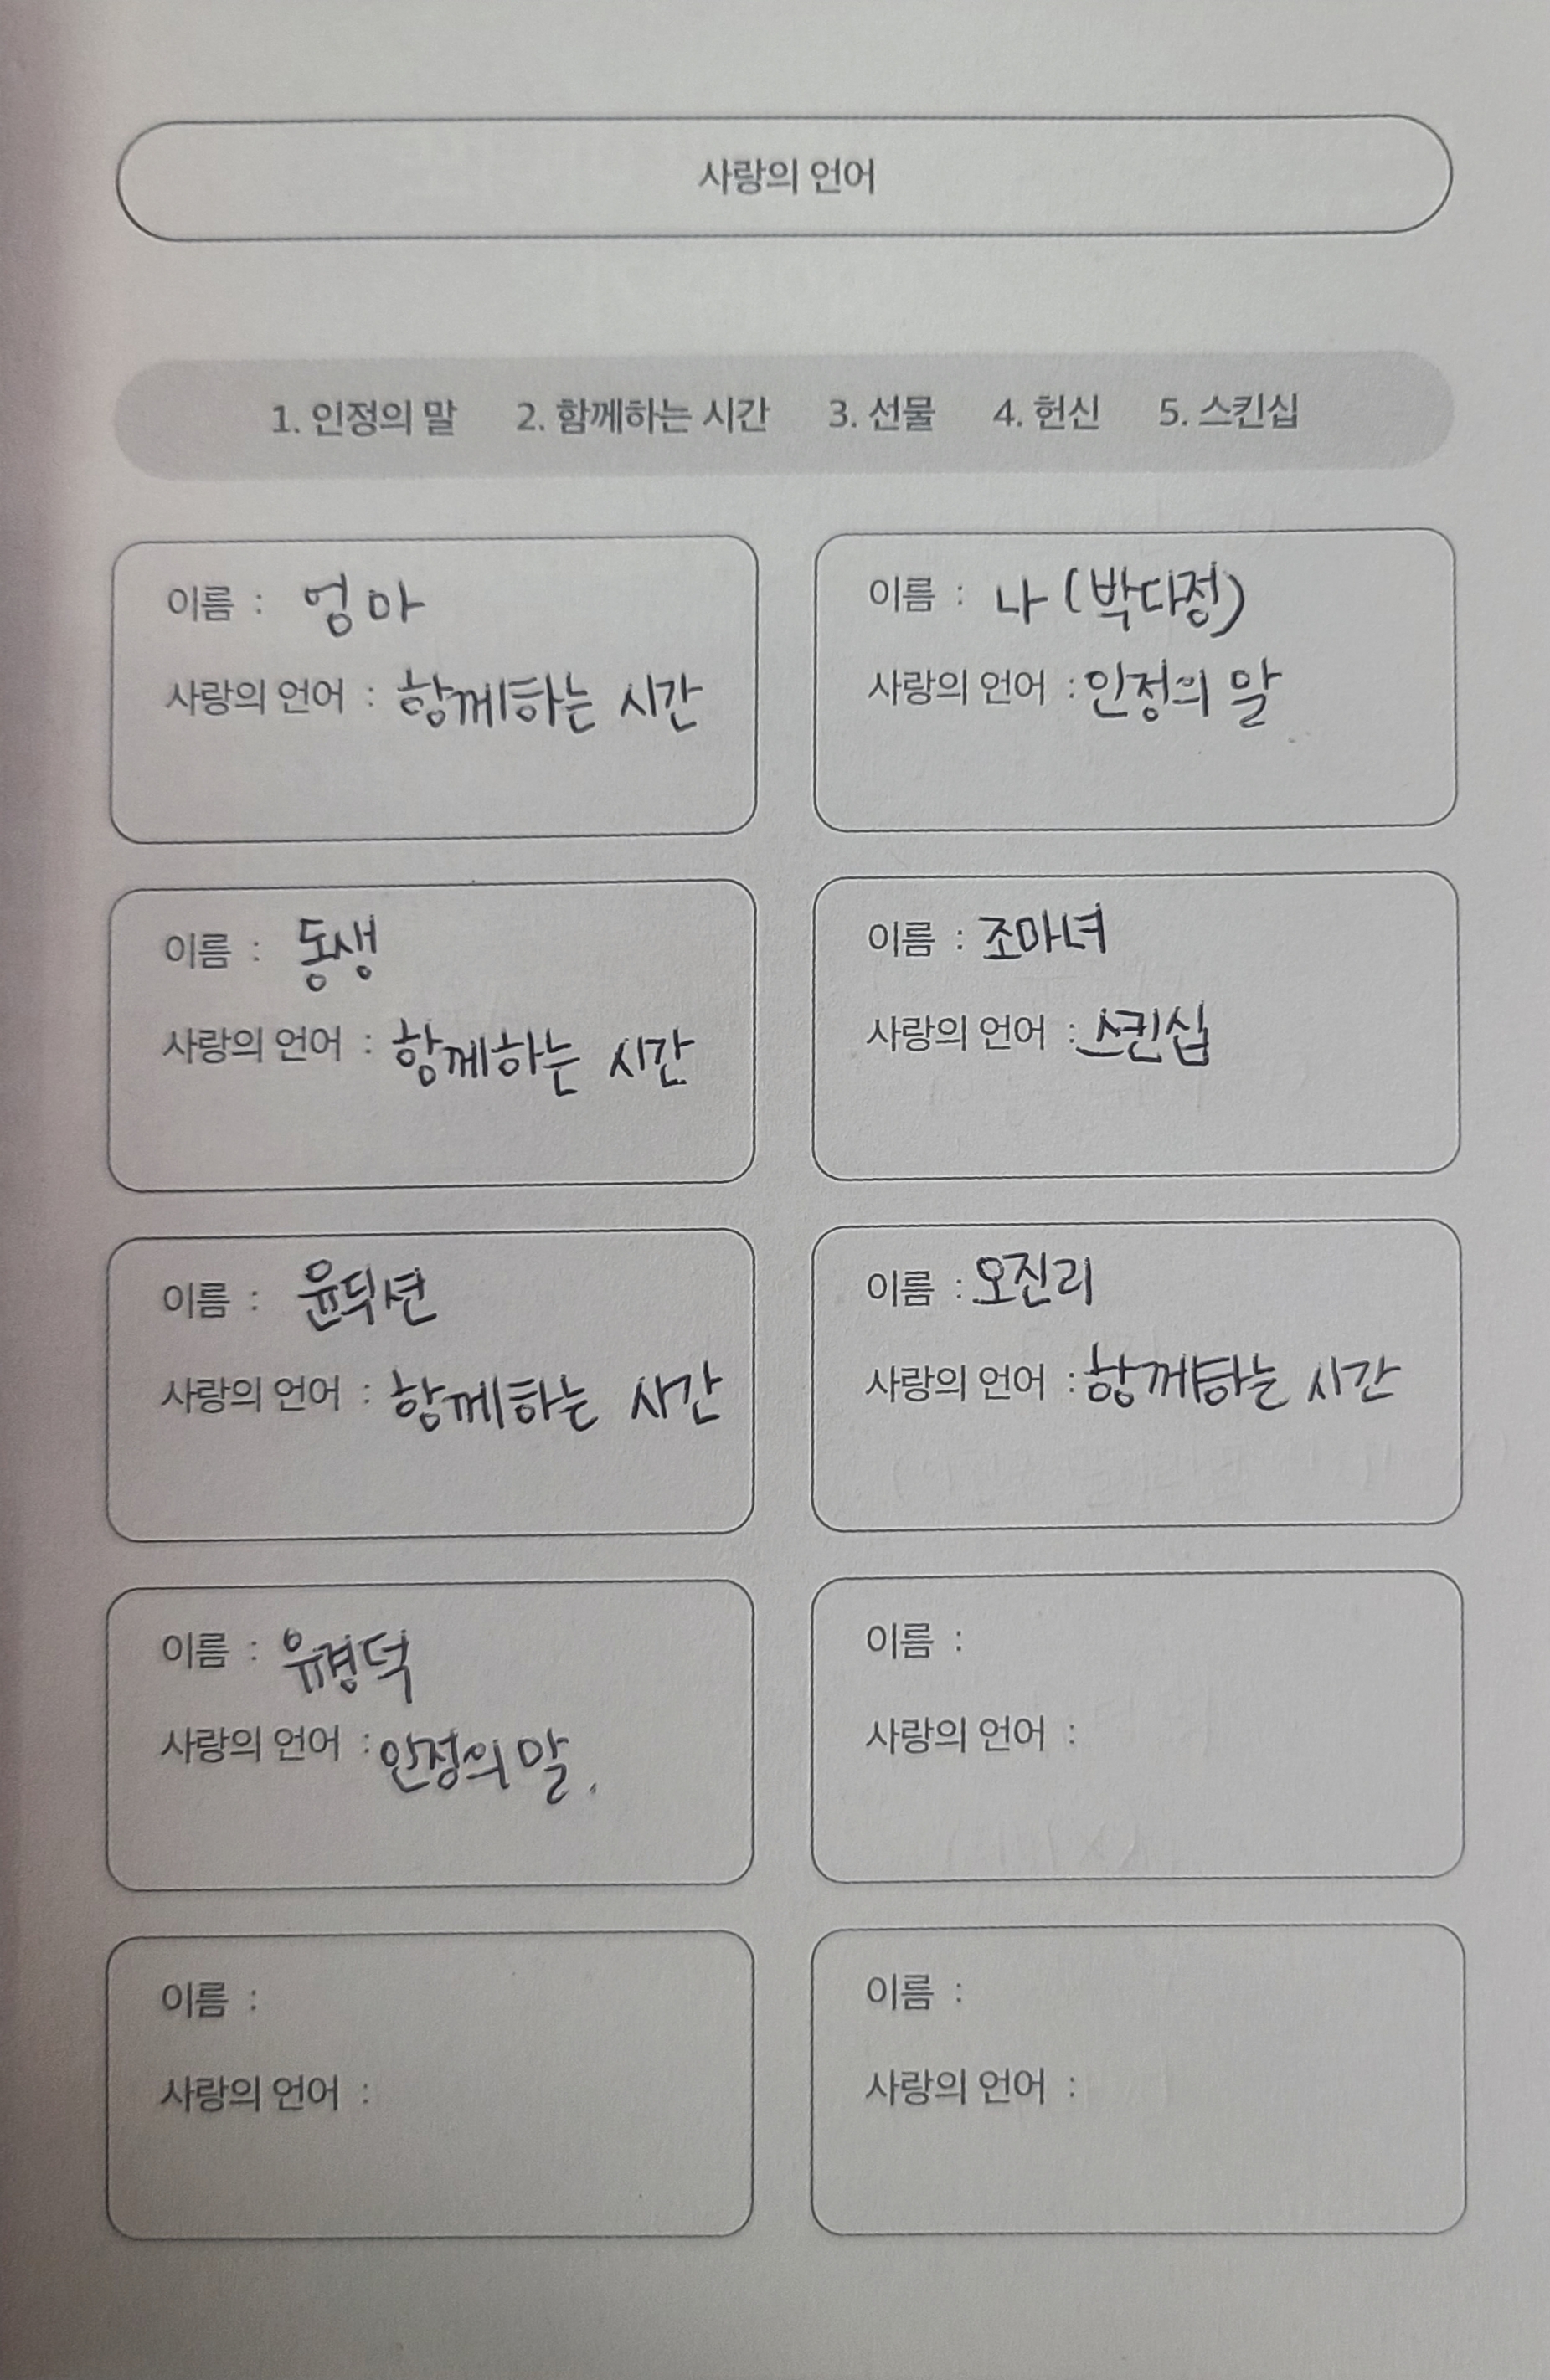 사랑의 언어
1. 인정의 말 2. 함께하는 시간 3. 선물 4. 헌신 5. 스킨십
이름 : 엄마
사랑의 언어 : 함께하는 시간
이름 : 나 (박다정)
사랑의 언어 : 인정의 말
이름 : 동생
사랑의 언어 : 함께하는 시간
이름 : 조마녀
사랑의 언어 : 스킨십
이름 :
사랑의 언어 : 함께하는 시간
이름 : 오진리
사랑의 언어 : 함께하는 시간
이름 : 유경덕
사랑의 언어 : 인정의 말.
이름 :
사랑의 언어 :
이름 :
사랑의 언어 :
이름 :
사랑의 언어 :